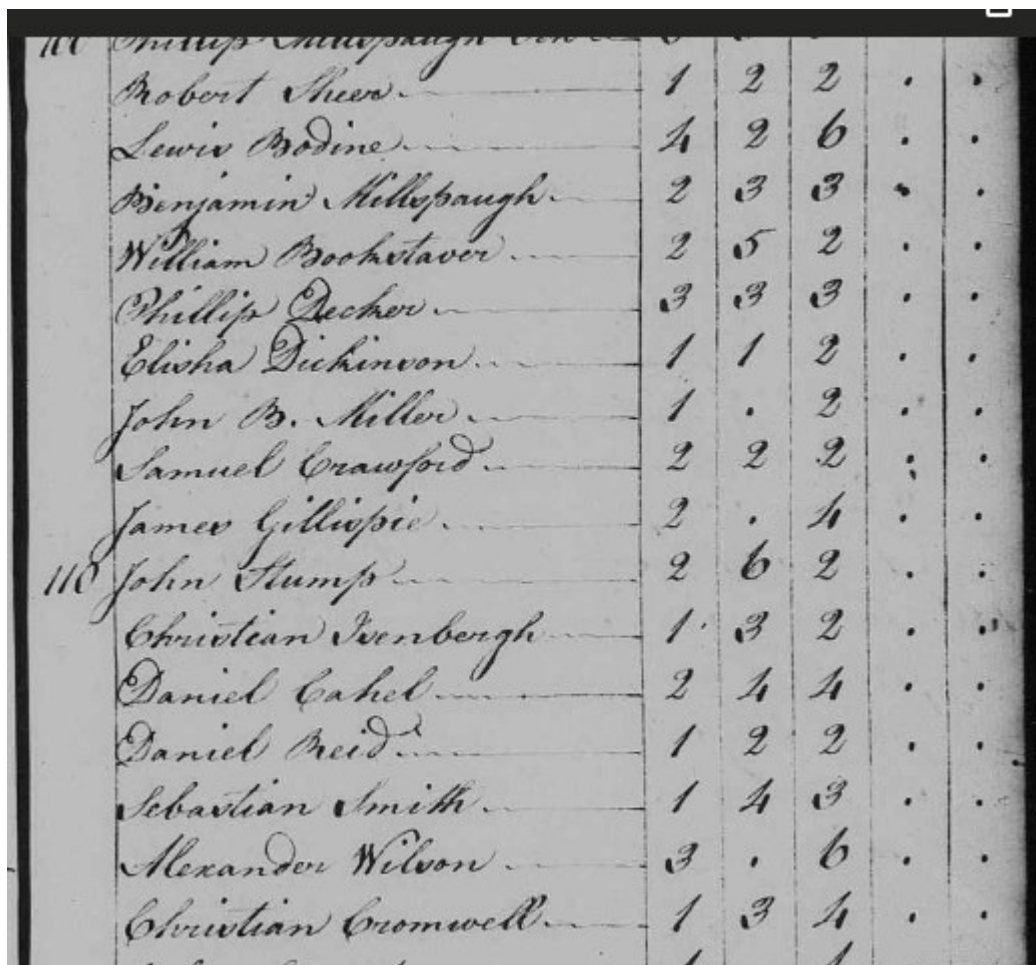 100 Phillip Millspaugh
Robert Sheer 1 2 2 . .
Lewis Bodine 4 2 6 . .
Benjamin Millspaugh 2 3 3 . .
William Bookstaver 2 5 2 . .
Phillip Decker 3 3 3 . .
Elisha Dickinson 1 1 2 . .
John B. Miller 1 . 2 . .
Samuel Crawford 2 2 2 . .
James Gillispie 2 . 4 . .
110 John Stump 2 6 2 . .
Christian Isenbergh 1 3 2 . .
Daniel Cahel 2 4 4 . .
Daniel Reid 1 2 2 . .
Sebastian Smith 1 4 3 . .
Alexander Wilson 3 . 6 . .
Christian Cromwell 1 3 4 . .